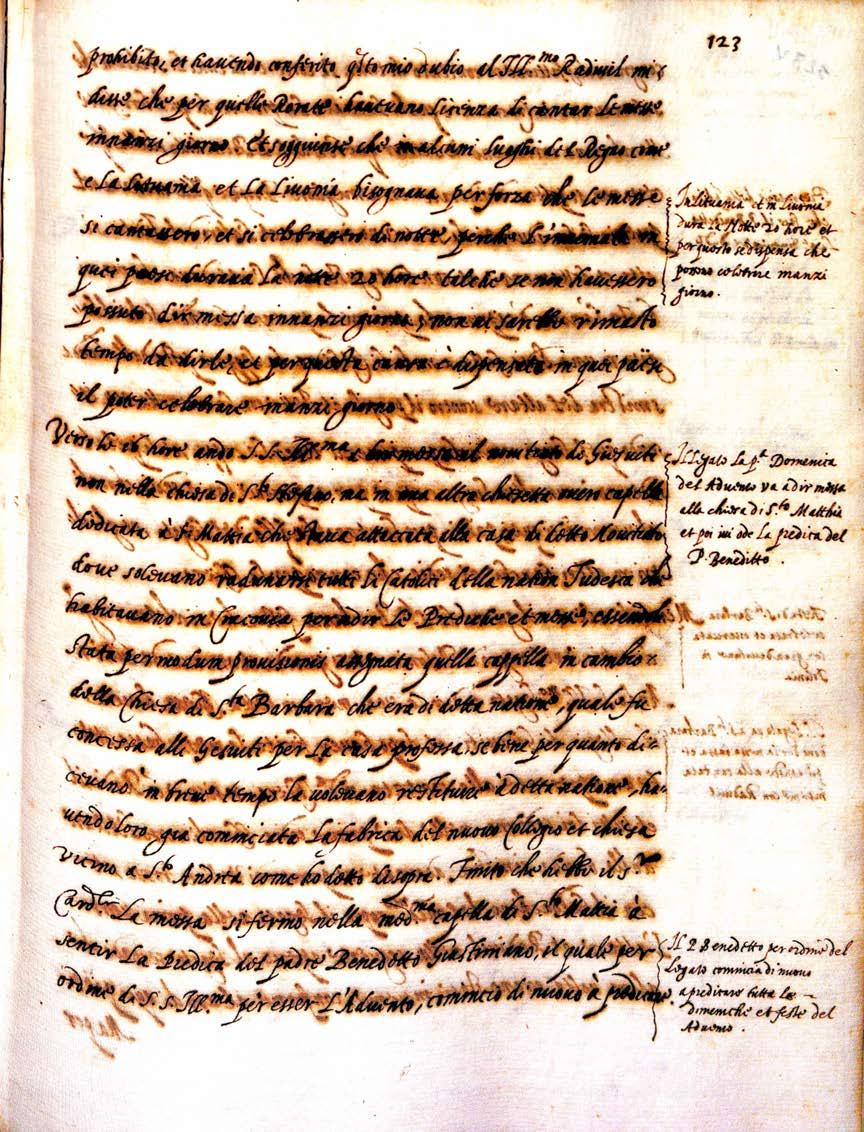 123
prohibito, et havendo conferito q̃sto mio dubio al Ill.mo Radivil mi
disse che per quelle Rorate havevano licenza di cantar le messe
innanzi giorno. Et soggiunse che in alcuni luoghi del Regno come
e la Lituania et la Livonia bisognava per forza che le messe
si cantassero, et si celebrassero di notte, perche l'invernale in
quei paesi durava la notte 20 hore talche se non havessero
possuto dir messa innanzi giorno, non vi sarebbe rimasto
tempo da dirle, et per questa causa è dispensato in quei paesi
il poter celebrare inanzi giorno
In Lituania et in Livonia
dura la Notte 20 hore et
per questo se dispensa che
possono celebrare inanzi
giorno.
Verso le 16 hore andò S. S. Ill.ma a dir messa al novitiato de Gesuiti
non nella chiesa di S.to Stefano, ma in una altra chiesetta overo capella
dedicata à S. Mattia che stava attaccata alla casa di detto Novitiato
dove solevano radunarse tutti li Catolici della nation Todesca che
habitavano in Cracovia per udir le Prediche et messe, essendoli
stata per modum provisionis assegnata quella cappella in cambio
della Chiesa di S.ta Barbara che era di detta natione, quale fu
concessa alli Gesuiti per la casa professa, se bene per quanto di=
cevano in breve tempo la volevano restituire à detta natione, ha=
vendo loro gia cominciata la fabrica del nuovo Collegio et chiesa
vicino a S.to Andrea come ho detto di sopra. Finito che hebbe il S.r
Card.le la messa si fermo nella med.ma capella di S.to Mattia à
sentir la Predica del padre Benedetto Giustiniano, il quale per
ordine di S. S. Ill.ma per esser l'Advento, cominciò di nuovo à predicare.
Il Legato la p.a Domenica
del Advento va a dir messa
alla chiesa di S.to Matthia
et poi ivi ode la predica del
P. Beneditto.
Il P. Benedetto per ordine del
Legato comincia di nuovo
a predicare tutte le
dimeniche et feste del
Advento.